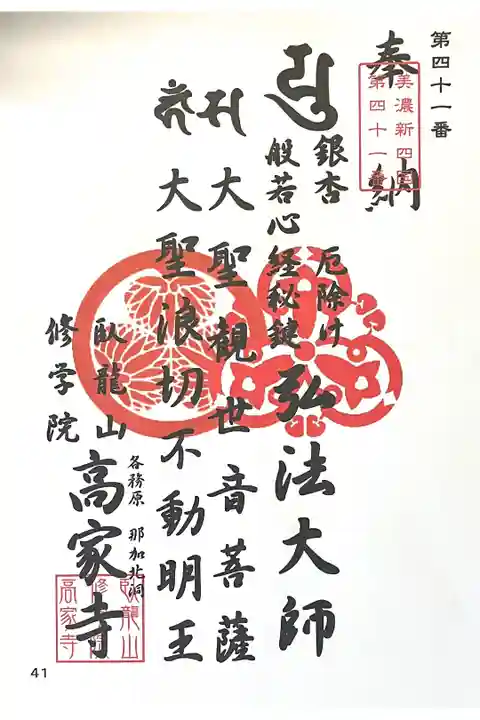 第四十一番
奉納
美濃新四国
第四十一番
銀杏 厄除け
般若心経秘鍵
弘法大師
大聖観世音菩薩
大聖浪切不動明王
各務原 那加北洞
臥龍山
高家寺
修学院
臥龍山
修学院
高家寺
41